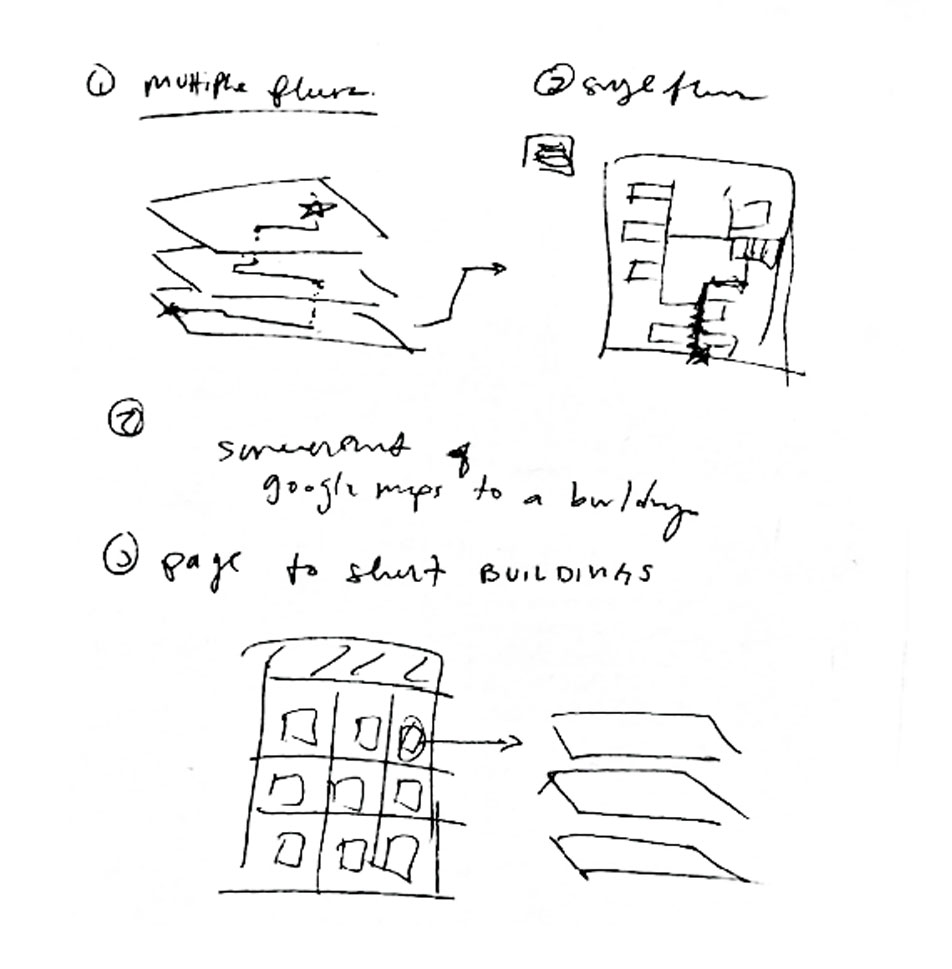 ① multiple floors.
② single floor
②
screenshot of
google maps to a building
③ page to select BUILDINGS